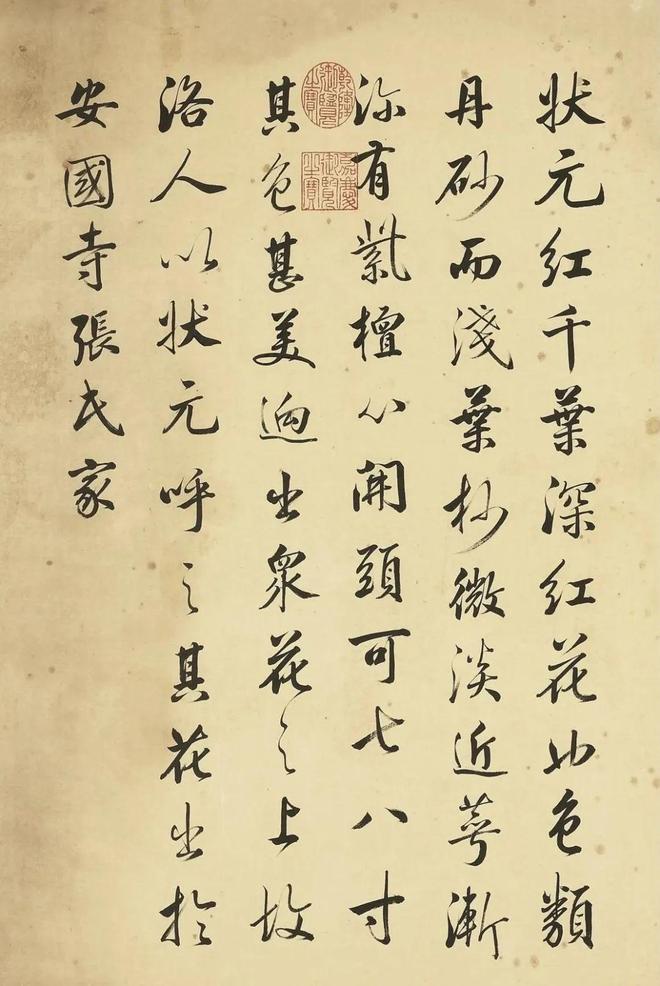 狀元紅千葉深紅花也色類
丹砂而淺葉杪微淡近萼漸
深有紫檀心開頭可七八寸
其色甚美迥出衆花之上故
洛人以狀元呼之其花出於
安國寺張氏家
乾隆御覽之寶
嘉慶御覽之寶